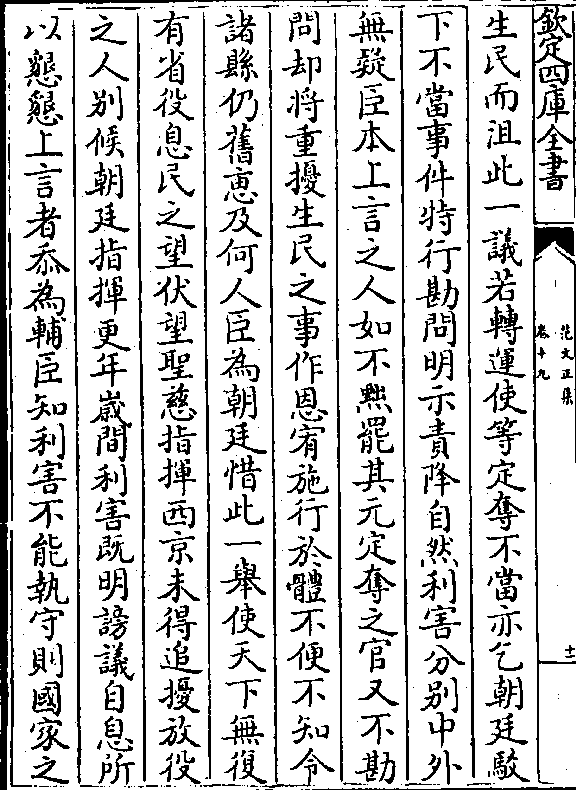 欽定四庫全書
范文正集
卷十九
十一
生民而沮此一議若轉運使等定奪不當亦乞朝廷駁
下不當事件特行勘問明示責降自然利害分别中外
無疑臣本上言之人如不黜罷其元定奪之官又不勘
問却将重擾生民之事作恩宥施行於體不便不知令
諸縣仍舊恵及何人臣為朝廷惜此一舉使天下無復
有省役息民之望伏望聖慈指揮西京未得追擾放役
之人别候朝廷指揮更年歲間利害既明謗議自息所
以懇懇上言者忝為輔臣知利害不能執守則國家之